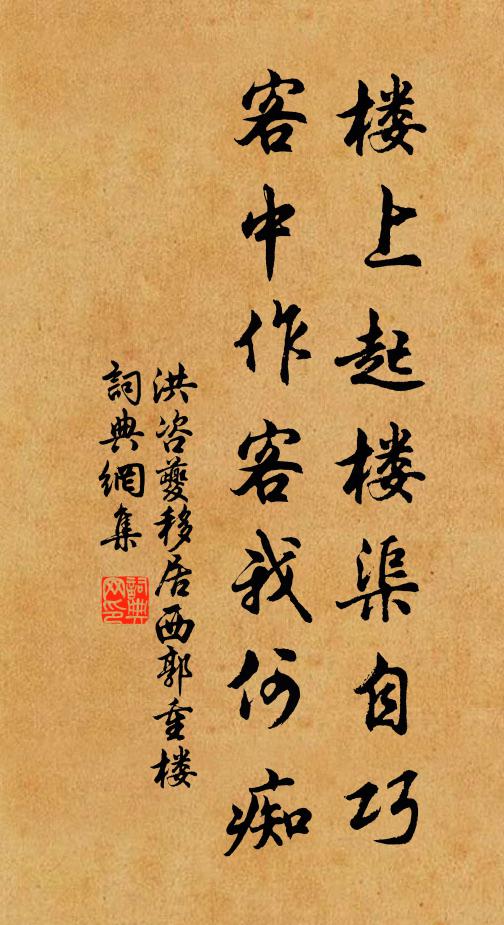 楼上起楼渠自巧
客中作客我何痴
洪咨夔移居西郭重楼
詞典網集
詞典
网印